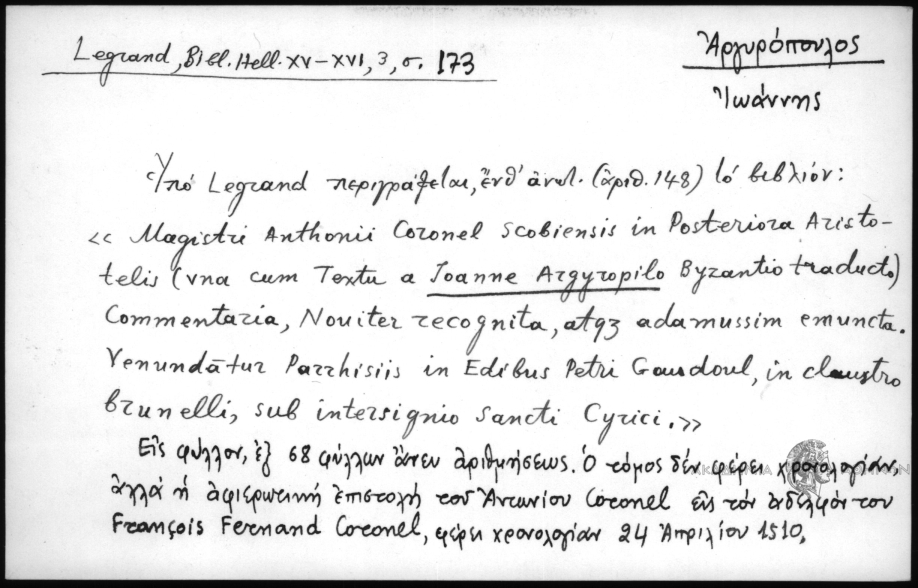 Legrand, Bibl. Hell. XV–XVI, 3, σ. 173
Ἀργυρόπουλος
Ἰωάννης
Ὑπό Legrand περιγράφεται, ἔνθ' ἀνωτ. (ἀριθ. 148) τό βιβλίον:
« Magistri Anthonii Coronel scobiensis in Posteriora Aristo-
telis (vna cum Textu a Joanne Argyropilo Byzantio traducto)
Commentaria, Nouiter recognita, atqꝫ adamussim emuncta.
Venundātur Parrhisiis in Edibus Petri Gaudoul, in claustro
brunelli, sub intersignio sancti Cyrici. »
Εἰς φύλλον, ἐξ 68 φύλλων ἄνευ ἀριθμήσεως. Ὁ τόμος δέν φέρει χρονολογίαν,
ἀλλά ἡ ἀφιερωτική ἐπιστολή τοῦ Ἀντωνίου Coronel εἰς τόν ἀδελφόν του
François Fernand Coronel, φέρει χρονολογίαν 24 Ἀπριλίου 1510.